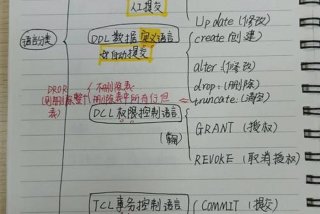 人工提交
Update(修改)
语言分类
DDL数据定义语言
create(创建)
自动提交
alter(修改)
DROP
不删除表
drop:(删除)
(删除整个表)
删除表中所有行包
truncate:(清空)
DCL权限控制语言
GRANT (授权)
REVOKE (取消授权)
TCL事务控制语言
COMMIT (提交)